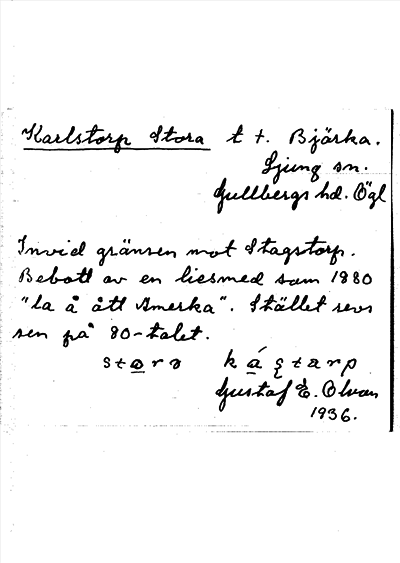 Karlstorp Stora t t. Bjärka.
Ljung sn.
Gullbergs hd. Ögl
Invid gränsen mot Stagstorp.
Bebott av en liesmed som 1880
"la å ått Amerka". Stället revs
sen på 80-talet.
storo káʂtarp
Gustaf E. Olvan
1936.